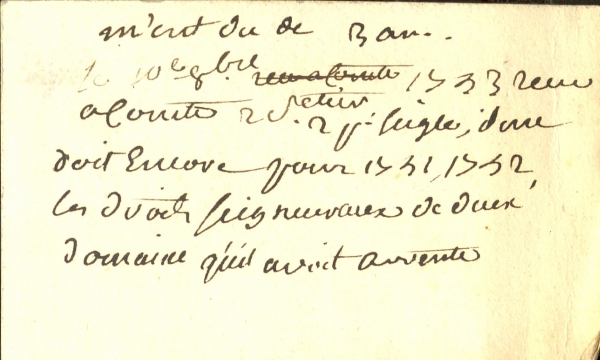 m'ont du de 3 an..
le 10e 8bre reçu a Comte 1753 reçu
a Comte 2 setier
2 p. seigle, donc
doit Encore pour 1751, 1752
les droits seigneuraux de deux
domaine qu'il avoit arrenté